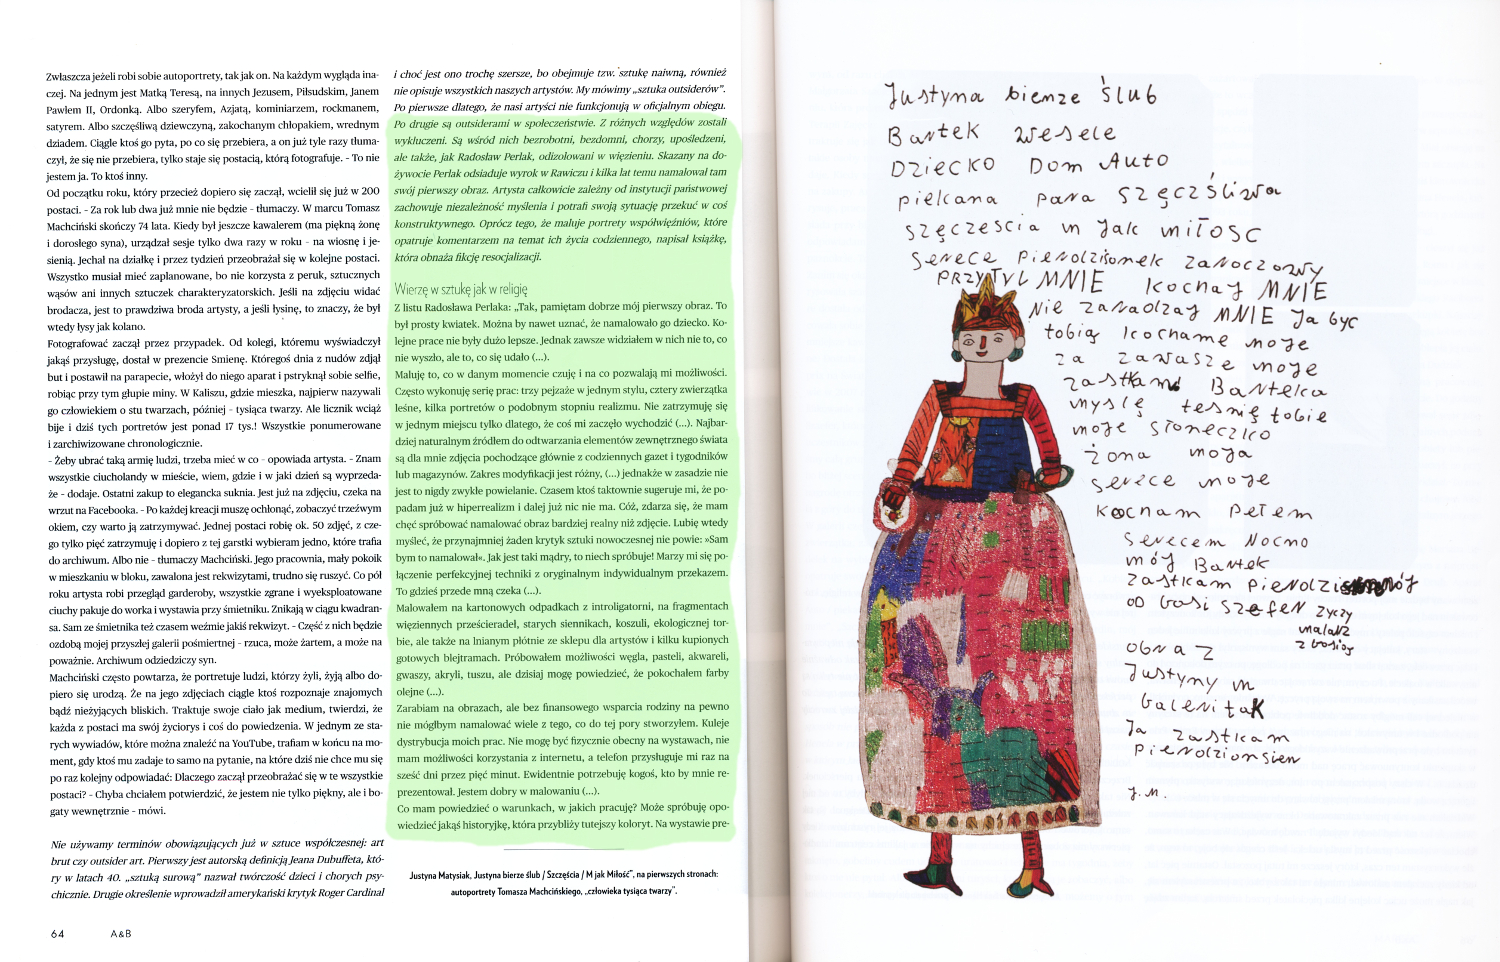 Zwłaszcza jeżeli robi sobie autoportrety, tak jak on. Na każdym wygląda ina-
czej. Na jednym jest Matką Teresą, na innych Jezusem, Piłsudskim, Janem
Pawłem II, Ordonką. Albo szeryfem, Azjatą, kominiarzem, rockmanem,
satyrem. Albo szczęśliwą dziewczyną, zakochanym chłopakiem, wrednym
dziadem. Ciągle ktoś go pyta, po co się przebiera, a on już tyle razy tłuma-
czył, że się nie przebiera, tylko staje się postacią, którą fotografuje. - To nie
jestem ja. To ktoś inny.
Od początku roku, który przecież dopiero się zaczął, wcielił się już w 200
postaci. - Za rok lub dwa już mnie nie będzie - tłumaczy. W marcu Tomasz
Machciński skończy 74 lata. Kiedy był jeszcze kawalerem (ma piękną żonę
i dorosłego syna), urządzał sesje tylko dwa razy w roku - na wiosnę i je-
sienią. Jechał na działkę i przez tydzień przeobrażał się w kolejne postaci.
Wszystko musiał mieć zaplanowane, bo nie korzysta z peruk, sztucznych
wąsów ani innych sztuczek charakteryzatorskich. Jeśli na zdjęciu widać
brodacza, jest to prawdziwa broda artysty, a jeśli łysinę, to znaczy, że był
wtedy łysy jak kolano.
Fotografować zaczął przez przypadek. Od kolegi, któremu wyświadczył
jakąś przysługę, dostał w prezencie Smienę. Któregoś dnia z nudów zdjął
but i postawił na parapecie, włożył do niego aparat i pstryknął sobie selfie,
robiąc przy tym głupie miny. W Kaliszu, gdzie mieszka, najpierw nazywali
go człowiekiem o stu twarzach, później - tysiąca twarzy. Ale licznik wciąż
bije i dziś tych portretów jest ponad 17 tys.! Wszystkie ponumerowane
i zarchiwizowane chronologicznie.
- Żeby ubrać taką armię ludzi, trzeba mieć w co - opowiada artysta. - Znam
wszystkie ciucholandy w mieście, wiem, gdzie i w jaki dzień są wyprzeda-
że - dodaje. Ostatni zakup to elegancka suknia. Jest już na zdjęciu, czeka na
wrzut na Facebooka. - Po każdej kreacji muszę ochłonąć, zobaczyć trzeźwym
okiem, czy warto ją zatrzymywać. Jednej postaci robię ok. 50 zdjęć, z cze-
go tylko pięć zatrzymuję i dopiero z tej garstki wybieram jedno, które trafia
do archiwum. Albo nie - tłumaczy Machciński. Jego pracownia, mały pokoik
w mieszkaniu w bloku, zawalona jest rekwizytami, trudno się ruszyć. Co pół
roku artysta robi przegląd garderoby, wszystkie zgrane i wyeksploatowane
ciuchy pakuje do worka i wystawia przy śmietniku. Znikają w ciągu kwadran-
sa. Sam ze śmietnika też czasem weźmie jakiś rekwizyt. - Część z nich będzie
ozdobą mojej przyszłej galerii pośmiertnej - rzuca, może żartem, a może na
poważnie. Archiwum odziedziczy syn.
Machciński często powtarza, że portretuje ludzi, którzy żyli, żyją albo do-
piero się urodzą. Że na jego zdjęciach ciągle ktoś rozpoznaje znajomych
bądź nieżyjących bliskich. Traktuje swoje ciało jak medium, twierdzi, że
każda z postaci ma swój życiorys i coś do powiedzenia. W jednym ze sta-
rych wywiadów, które można znaleźć na YouTube, trafiam w końcu na mo-
ment, gdy ktoś mu zadaje to samo na pytanie, na które dziś nie chce mu się
po raz kolejny odpowiadać: Dlaczego zaczął przeobrażać się w te wszystkie
postaci? - Chyba chciałem potwierdzić, że jestem nie tylko piękny, ale i bo-
gaty wewnętrznie - mówi.
Nie używamy terminów obowiązujących już w sztuce współczesnej: art
brut czy outsider art. Pierwszy jest autorską definicją Jeana Dubuffeta, któ-
ry w latach 40. „sztuką surową” nazwał twórczość dzieci i chorych psy-
chicznie. Drugie określenie wprowadził amerykański krytyk Roger Cardinal
i choć jest ono trochę szersze, bo obejmuje tzw. sztukę naiwną, również
nie opisuje wszystkich naszych artystów. My mówimy „sztuka outsiderów”.
Po pierwsze dlatego, że nasi artyści nie funkcjonują w oficjalnym obiegu.
Po drugie są outsiderami w społeczeństwie. Z różnych względów zostali
wykluczeni. Są wśród nich bezrobotni, bezdomni, chorzy, upośledzeni,
ale także, jak Radosław Perlak, odizolowani w więzieniu. Skazany na do-
żywocie Perlak odsiaduje wyrok w Rawiczu i kilka lat temu namalował tam
swój pierwszy obraz. Artysta całkowicie zależny od instytucji państwowej
zachowuje niezależność myślenia i potrafi swoją sytuację przekuć w coś
konstruktywnego. Oprócz tego, że maluje portrety współwięźniów, które
opatruje komentarzem na temat ich życia codziennego, napisał książkę,
która obnaża fikcję resocjalizacji.
Wierzę w sztukę jak w religię
Z listu Radosława Perlaka: „Tak, pamiętam dobrze mój pierwszy obraz. To
był prosty kwiatek. Można by nawet uznać, że namalowało go dziecko. Ko-
lejne prace nie były dużo lepsze. Jednak zawsze widziałem w nich nie to, co
nie wyszło, ale to, co się udało (...).
Maluję to, co w danym momencie czuję i na co pozwalają mi możliwości.
Często wykonuję serię prac: trzy pejzaże w jednym stylu, cztery zwierzątka
leśne, kilka portretów o podobnym stopniu realizmu. Nie zatrzymuję się
w jednym miejscu tylko dlatego, że coś mi zaczęło wychodzić (...). Najbar-
dziej naturalnym źródłem do odtwarzania elementów zewnętrznego świata
są dla mnie zdjęcia pochodzące głównie z codziennych gazet i tygodników
lub magazynów. Zakres modyfikacji jest różny, (...) jednakże w zasadzie nie
jest to nigdy zwykłe powielanie. Czasem ktoś taktownie sugeruje mi, że po-
padam już w hiperrealizm i dalej już nic nie ma. Cóż, zdarza się, że mam
chęć spróbować namalować obraz bardziej realny niż zdjęcie. Lubię wtedy
myśleć, że przynajmniej żaden krytyk sztuki nowoczesnej nie powie: »Sam
bym to namalował«. Jak jest taki mądry, to niech spróbuje! Marzy mi się po-
łączenie perfekcyjnej techniki z oryginalnym indywidualnym przekazem.
To gdzieś przede mną czeka (...).
Malowałem na kartonowych odpadkach z introligatorni, na fragmentach
więziennych prześcieradeł, starych siennikach, koszuli, ekologicznej tor-
bie, ale także na lnianym płótnie ze sklepu dla artystów i kilku kupionych
gotowych blejtramach. Próbowałem możliwości węgla, pasteli, akwareli,
gwaszy, akryli, tuszu, ale dzisiaj mogę powiedzieć, że pokochałem farby
olejne (...).
Zarabiam na obrazach, ale bez finansowego wsparcia rodziny na pewno
nie mógłbym namalować wiele z tego, co do tej pory stworzyłem. Kuleje
dystrybucja moich prac. Nie mogę być fizycznie obecny na wystawach, nie
mam możliwości korzystania z internetu, a telefon przysługuje mi raz na
sześć dni przez pięć minut. Ewidentnie potrzebuję kogoś, kto by mnie re-
prezentował. Jestem dobry w malowaniu (...).
Co mam powiedzieć o warunkach, w jakich pracuję? Może spróbuję opo-
wiedzieć jakąś historyjkę, która przybliży tutejszy koloryt. Na wystawie pre-
Justyna Matysiak, Justyna bierze ślub / Szczęścia / M jak Miłość”, na pierwszych stronach:
autoportrety Tomasza Machcińskiego, „człowieka tysiąca twarzy”.
64 A&B
Justyna bienze ślub
Bartek Wesele
DZIECKO DOM AUTO
pielcana para szęczśliwa
szęczescia m Jak miłosc
serece pierdzisomek zaroczony
PRZYTYL MNIE kochaj MNIE
Nie zaradzaj MNIE Ja być
tobią kochame moje
za zawasze moje
zastkam Bartelca
myslę tesnię tobie
moje słoneczko
żona moja
serece moje
kocham Petem
serecem Nocno
mój Bartek
zastkam
od Gosi szefer życzy
malarz
z Gosioy
obraz
Justyny m
Galeritak
Ja zastkam
pierdzionsien
J. M.